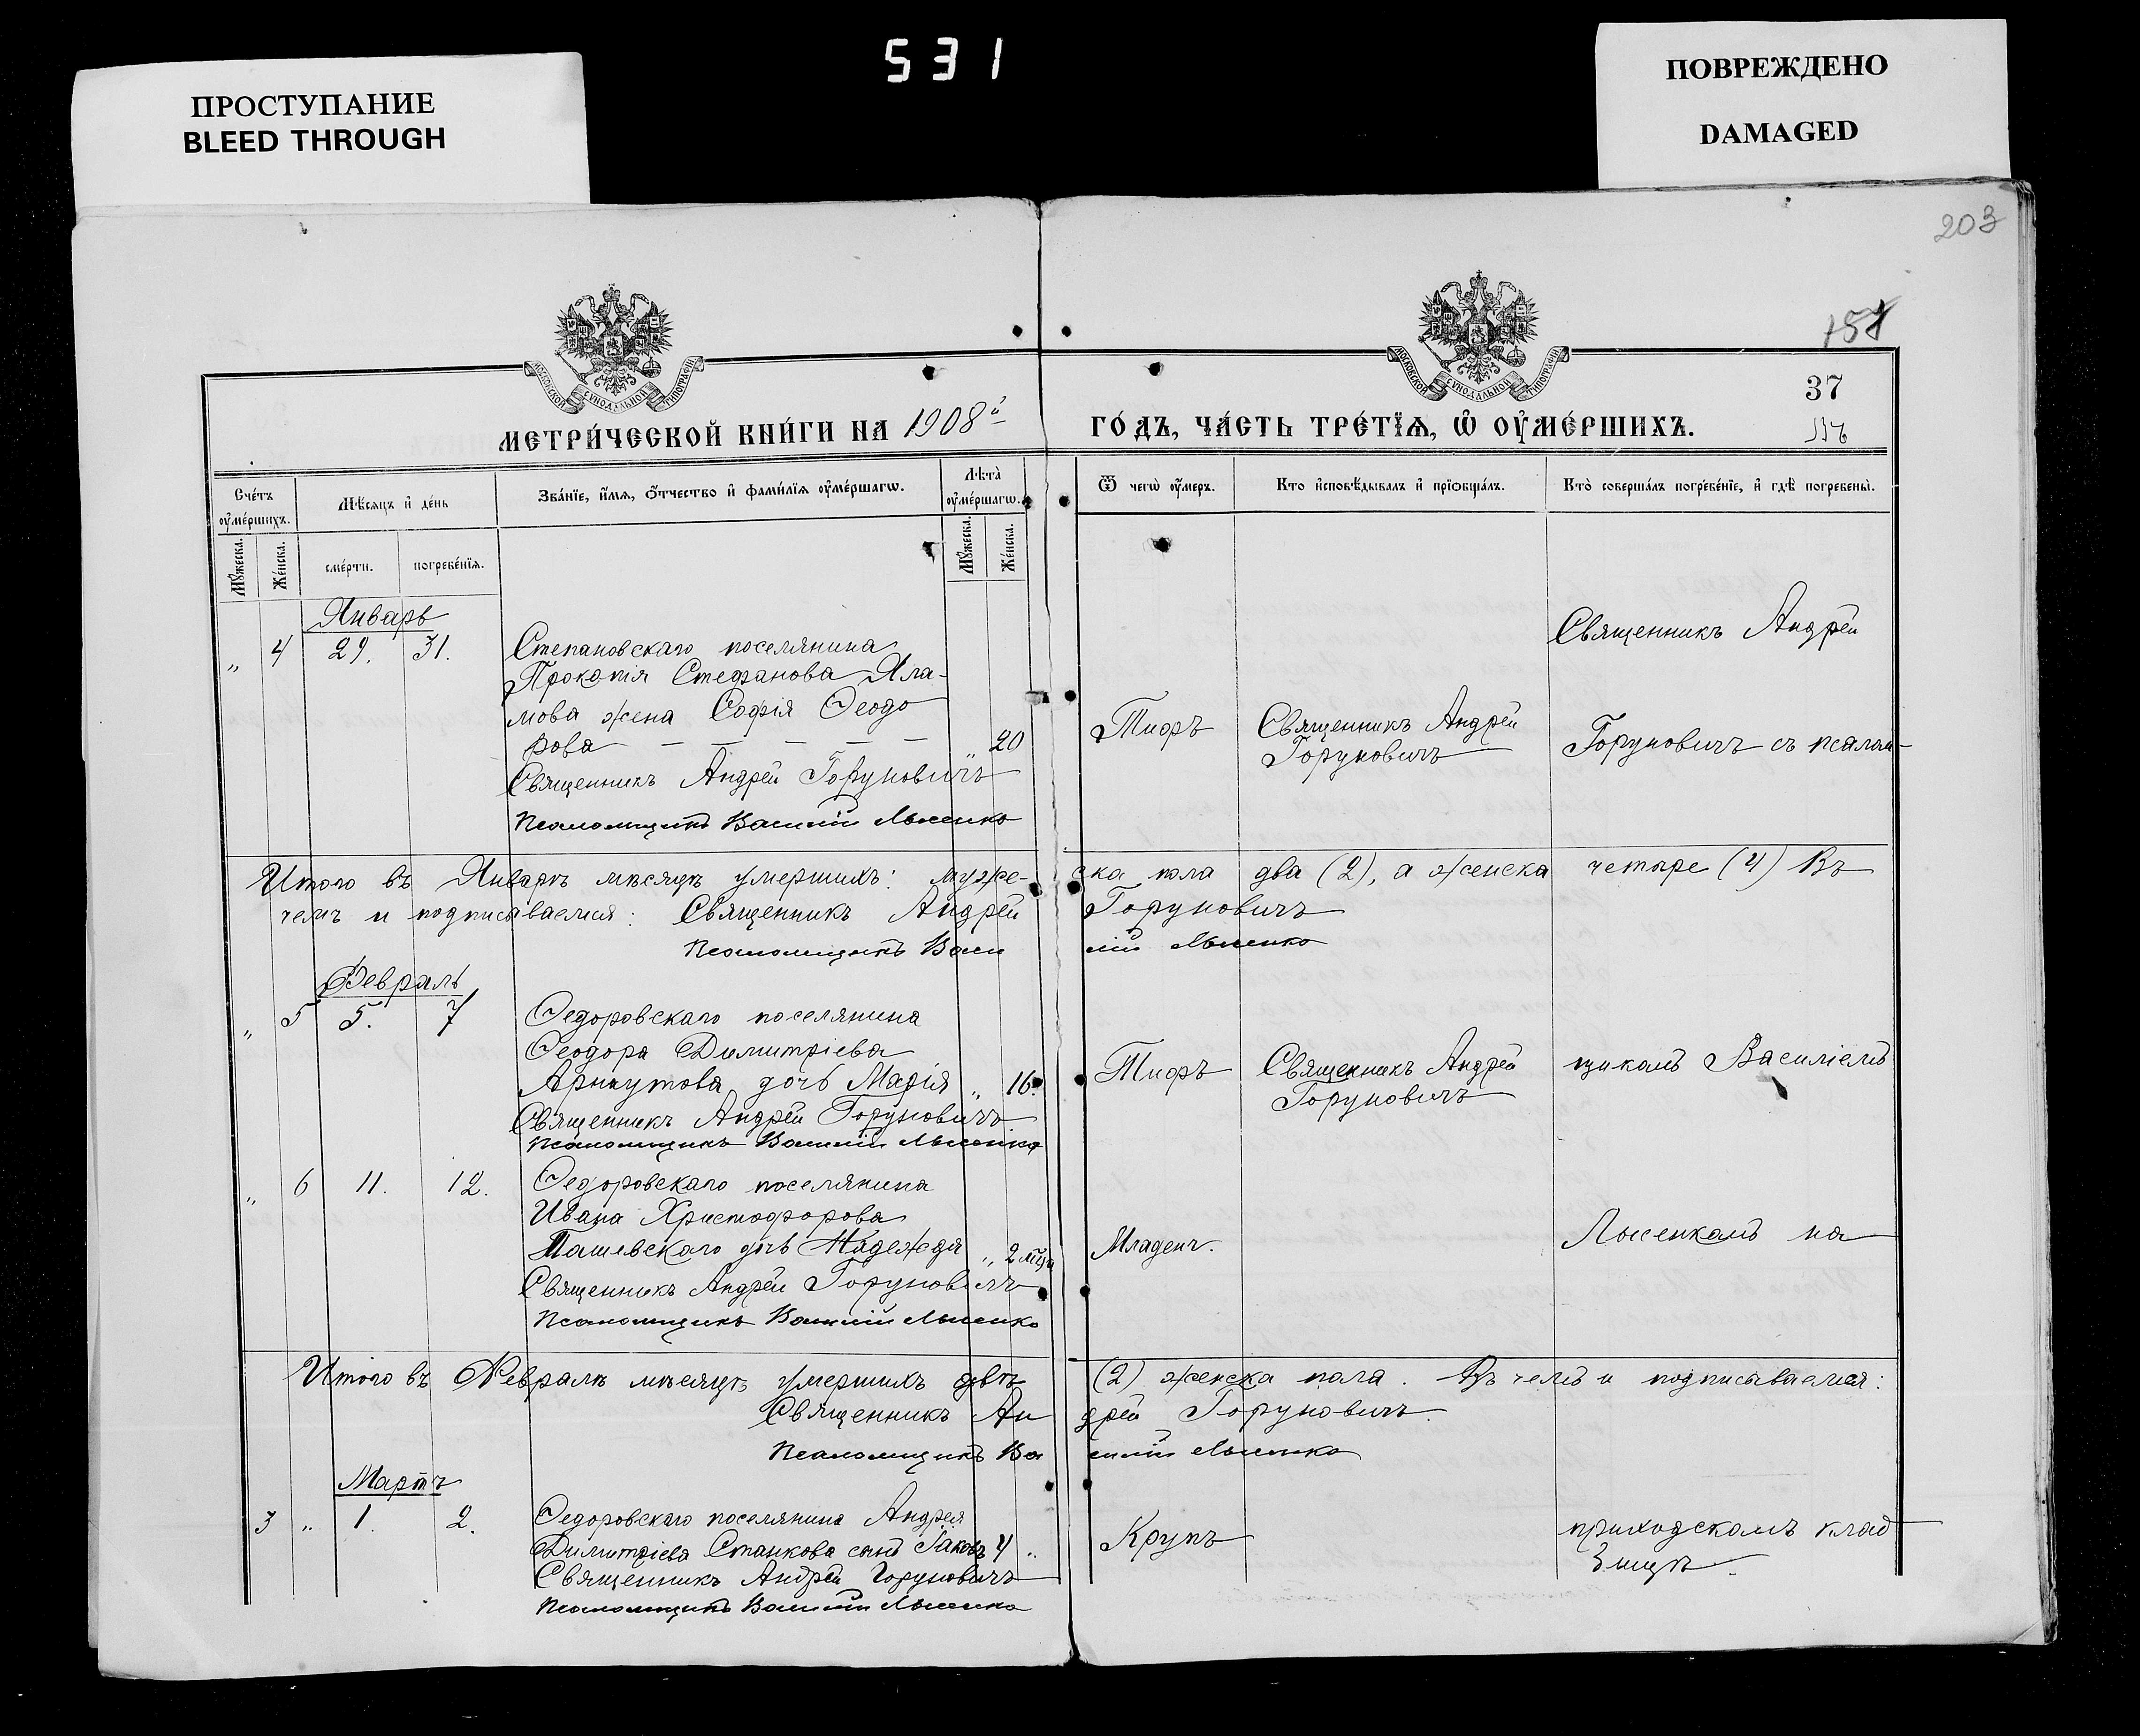 531
ПРОСТУПАНИЕ
BLEED THROUGH
ПОВРЕЖДЕНО
DAMAGED
203
МОСКОВСКОЙ СѴНОДАЛЬНОЙ ТИПОГРАФІИ
МОСКОВСКОЙ СѴНОДАЛЬНОЙ ТИПОГРАФІИ
37
МЕТРИ́ЧЕСКОЙ КНИ́ГИ НА 1908й
ГО́ДЪ, ЧА́СТЬ ТРЕ́ТЇѦ, Ѡ҆ ОУ҆МЕ́РШИХЪ.
Сче́тъ оу҆ме́ршихъ.
Мѣ́сяцъ и҆ де́нь
Зва́нїе, и҆́мя, ѻ҆́тчество и҆ фами́лїя оу҆ме́ршагѡ.
Лѣта̀ оу҆ме́ршагѡ.
Ѿ чегѡ̀ оу҆́меръ.
Кто̀ и҆сповѣ́дывалъ и҆ прїѻбща́лъ.
Кто̀ соверша́лъ погребе́нїе, и҆ гдѣ̀ погребены̀.
Мꙋ́жеска.
Же́нска.
сме́рти.
погребе́нїя.
Мꙋ́жеска.
Же́нска.
Январь
" 4 29. 31.
Степановскаго поселянина
Прокопія Стефанова Яла-
мова жена Софія Ѳеодо
рова — — — — — " 20
Священникъ Андрей Горуновичъ
Псаломщикъ Василій Лысенко
Тифъ
Священникъ Андрей
Горуновичъ
Священникъ Андрей
Горуновичъ съ псалом-
Итого въ Январѣ мѣсяцѣ умершихъ: муже-ска пола два (2), а женска четыре (4) Въ
чемъ и подписываемся: Священникъ Андрей Горуновичъ
Псаломщикъ Василій Лысенко
Февраль
" 5 5. 7
Ѳедоровскаго поселянина
Ѳеодора Димитріева
Арнаутова дочь Марія " 16.
Священникъ Андрей Горуновичъ
Псаломщикъ Василій Лысенко
Тифъ
Священникъ Андрей
Горуновичъ
щикомъ Василіемъ
" 6 11. 12.
Ѳедоровскаго поселянина
Ивана Христофорова
дочь Надежда " 2 мца
Священникъ Андрей Горуновичъ
Псаломщикъ Василій Лысенко
Младенч.
Лысенкомъ на
Итого въ Февралѣ мѣсяцѣ умершихъ двѣ (2) женска пола. Въ чемъ и подписываемся:
Священникъ Андрей Горуновичъ.
Псаломщикъ Василій Лысенко
Мартъ
3 " 1. 2.
Ѳедоровскаго поселянина Андрея
Димитріева Станкова сынъ Іаковъ 4 "
Священникъ Андрей Горуновичъ
Псаломщикъ Василій Лысенко
Крупъ
приходскомъ клад
бищѣ.